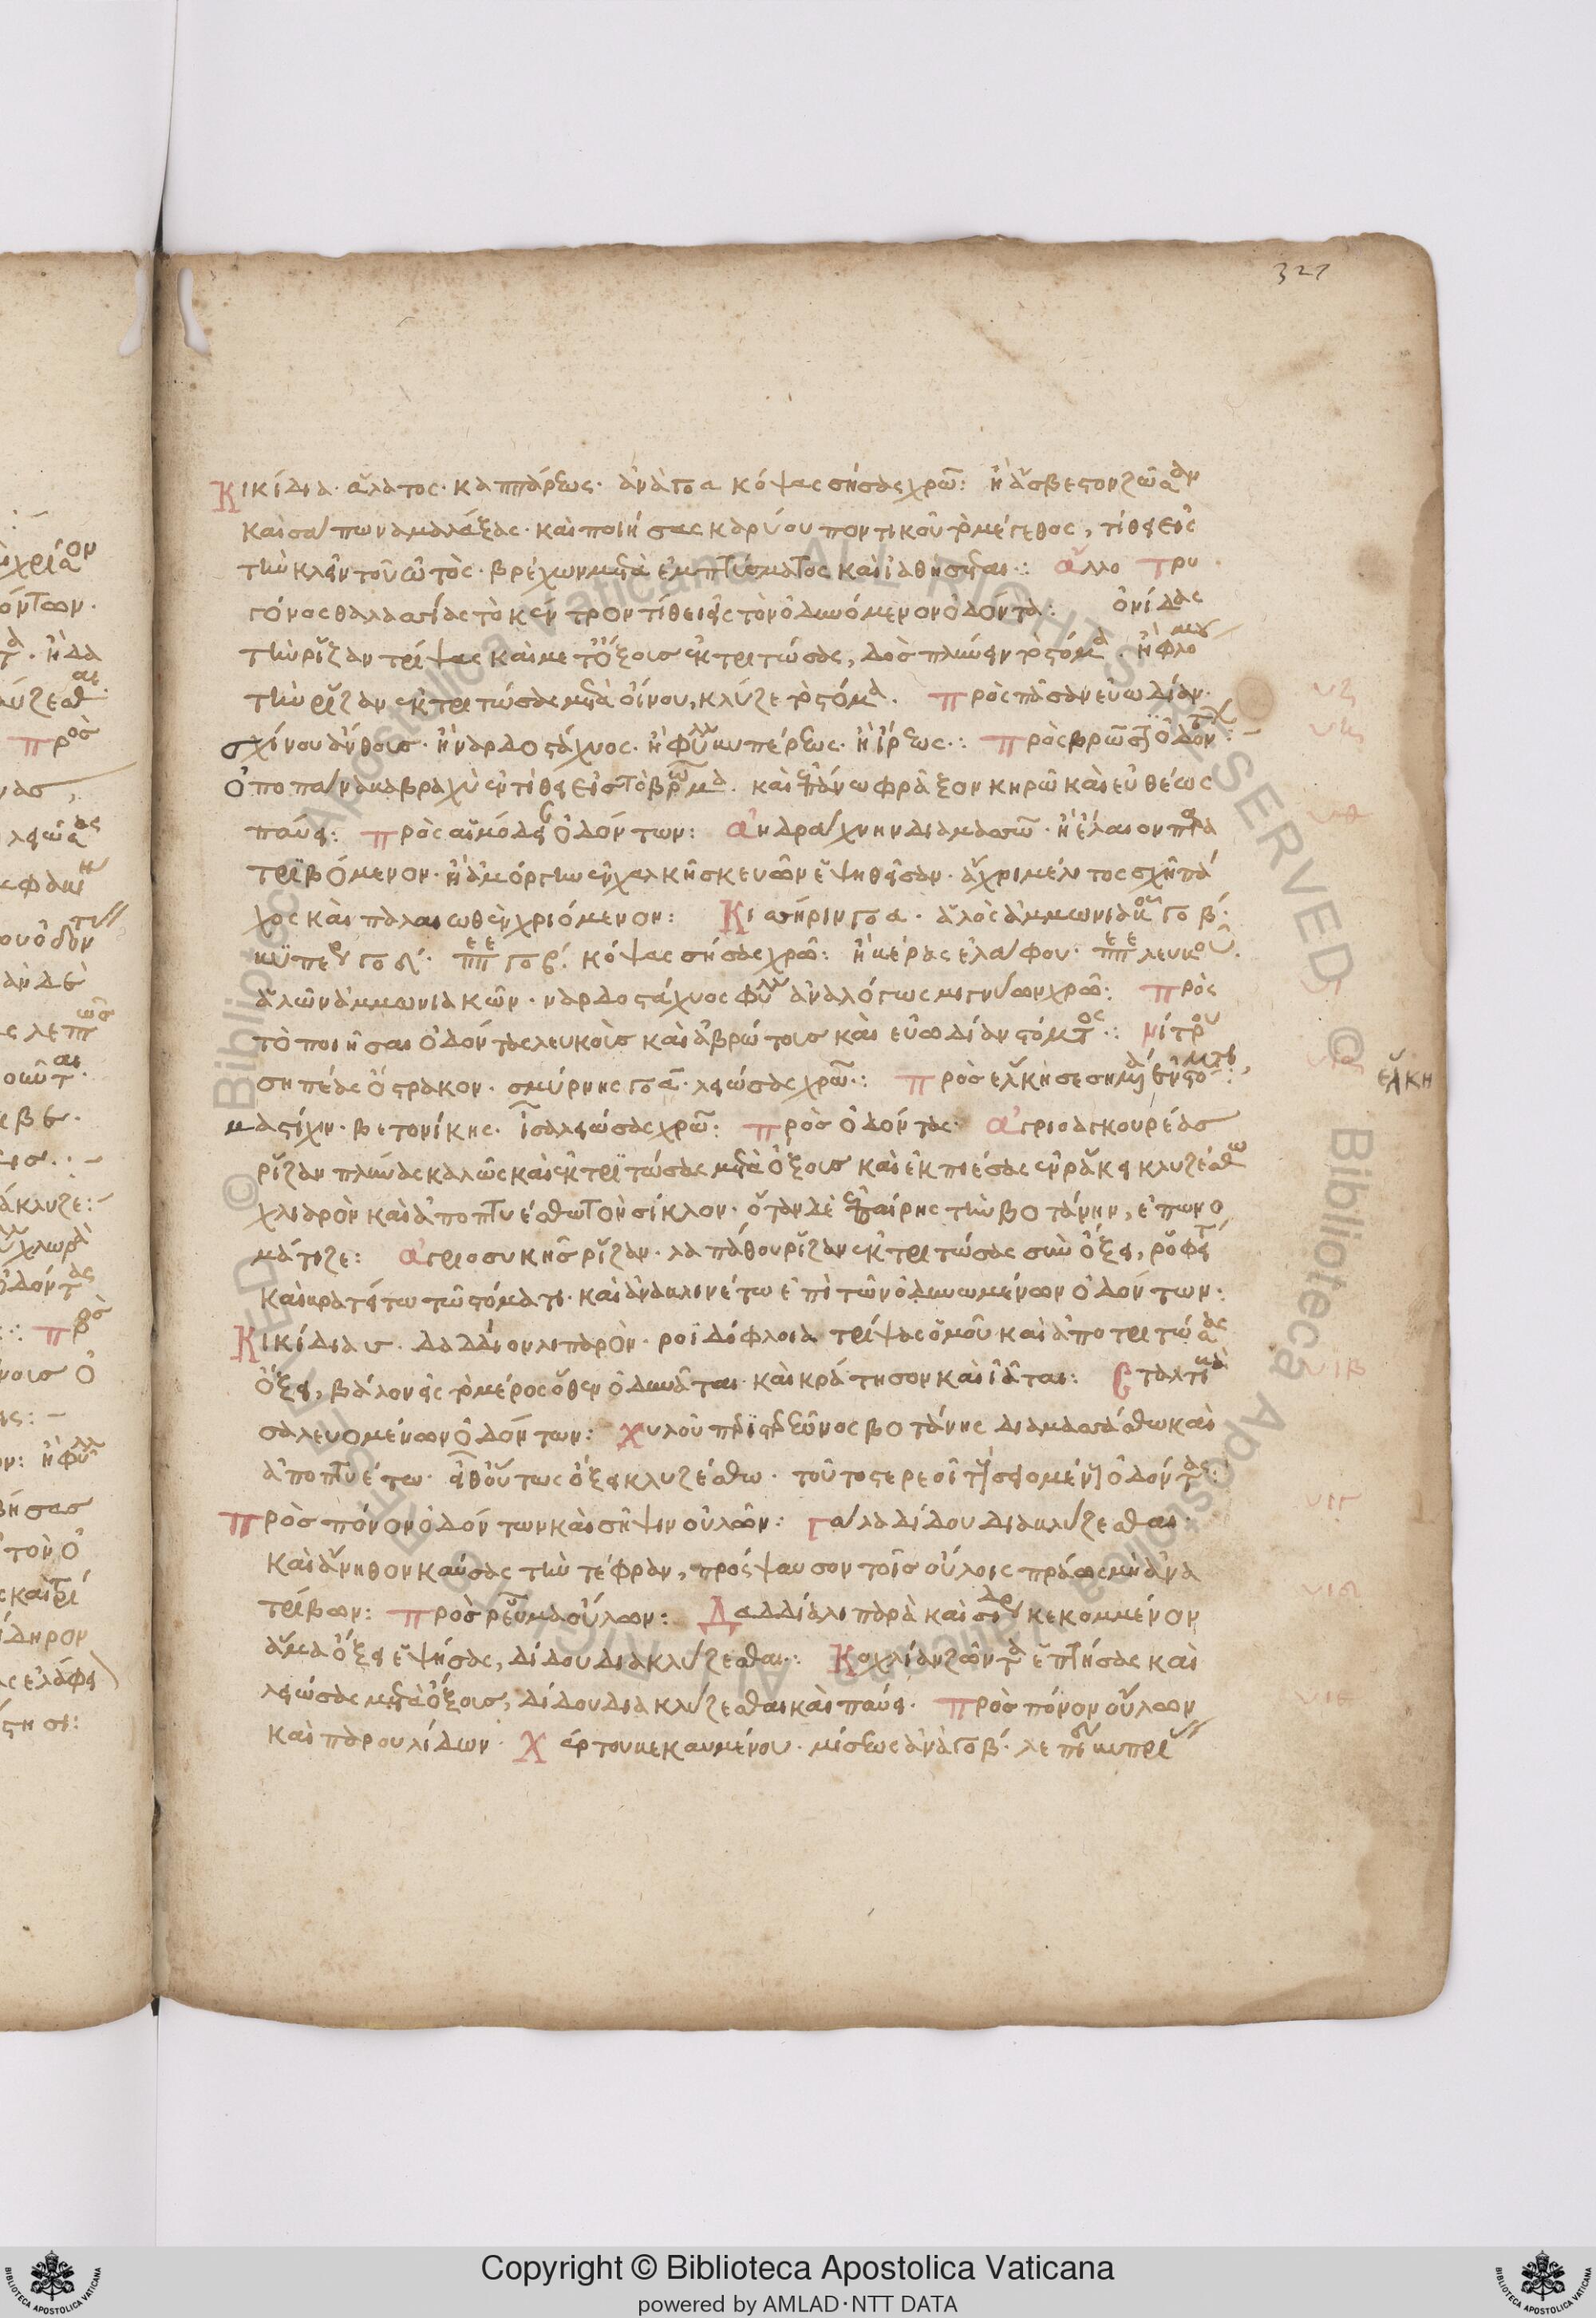 327
Κικίδια· ἅλατος· καππάρεως· ἀνὰ γο α κόψας σήσας χρῶ: ἢ ἄσβεστον
καὶ σάπωνα μαλάξας· καὶ ποιήσας καρύου ποντικοῦ τὸ μέγεθος, τίθει εἰς
τὴν κλεῖν τοῦ ὠτὸς· βρέχων μετὰ ἐμπτύσματος καὶ ἰαθήσεται: ἄλλο Τρυ
γόνος θαλασσίας τὸ κέντρον τίθει εἰς τὸν ὀδυνόμενον ὀδόντα: ὀνίδας
τὴν ῥίζαν τρίψας καὶ μετ' ὄξους ἐκτριτώσας, δὸς πλύνειν τὸ στόμα. ἢ φλόμου
τὴν ρίζαν ἐκτριτώσας μετὰ οἴνου, κλύζε τὸ στόμα. Πρὸς πᾶσαν εὐωδίαν·
σχίνου ἄνθους· ἢ ναρδοστάχυος· ἢ φύλλα κυπέρεως· ἢ ἴρεως: Πρὸς βρῶσιν ὀδόντων
Ὀποπάνακα βραχὺ ἐντίθει εἰς τὸ βρῶμα. καὶ ἐπάνω φράξον κηρῶ καὶ εὐθέως
παύει: Πρὸς αἱμόδειν ὀδόντων: Ἀνδράχνην διαμασσῶ· ἢ ἔλαιον
τριβόμενον· ἢ ἀμόργην ἐν χαλκῆ σκευῶν ἑψηθεῖσαν· ἄχρι μέλιτος σχῆ πά
χος καὶ παλαιωθὲν χριόμενον: Κισσήριν γο α· ἁλὸς ἀμμωνιακοῦ γο β·
κυπέρου γο δ· πεπε γο β· κόψας σήσας χρῶ: ἢ κέρας ἐλάφου· πεπε λευκοῦ.
ἁλῶν ἀμμωνιακῶν· ναρδοστάχυος φύλλα ἀναλόγως μιγνύων χρῶ: Πρὸς
τὸ ποιῆσαι ὀδόντας λευκοὺς καὶ ἀβρώτους καὶ εὐωδίαν στόματος: Νίτρου
σηπέας ὄστρακον· σμύρνης γο α· λειώσας χρῶ: Πρὸς ἕλκη σεσημμένα ἐν στόματι
ἕλκη
μαστίχην· βετονίκης· ἴσα λειώσας χρῶ: Πρὸς ὀδόντας· Ἀγριοαγκουρέας
ρίζαν πλύνας καλῶς καὶ ἐκτριτώσας μετὰ ὄξους καὶ ἐκπιέσας ἐν ράκει κλυζέσθω
χλιαρὸν καὶ ἀποπτυέσθω τὸν σίκλον· ὅταν δὲ ἐπαίρης τὴν βοτάνην, ἐπωνο
μάτιζε: Ἀγριοσυκῆς ρίζαν· λαπάθου ρίζαν ἐκτριτώσας σὺν ὄξει,
καὶ κρατείτω τῶ στόματι· καὶ ἀνακλινέτω ἐπὶ τῶν ὀδυνωμένων ὀδόντων:
Κικίδια δαδδίον λιπαρὸν· ροϊδόφλοια τρίψας ὁμοῦ καὶ ἀποτριτώσας
ὄξει, βάλον εἰς τὸ μέρος ὅθεν ὀδυνᾶται· καὶ κράτησον καὶ ἰᾶται: Σταλτικὰ
σαλευομένων ὀδόντων: Χυλοῦ βοτάνης διαμασσάσθω καὶ
ἀποπτυέτω· εἶθ' οὕτως ὄξει κλυζέσθω· τοῦτο στερεοῖ τοὺς σειομένους ὀδόντας:
Πρὸς πόνον ὀδόντων καὶ σῆψιν οὔλων: Γάλα δίδου διακλύζεσθαι·
καὶ ἄνηθον καύσας τὴν τέφραν, πρόσψαυσον τοῖς οὔλοις πράως μὴ ἀνα
τρίβων: Πρὸς ρεῦμα οὔλων: Δαδδία λιπαρὰ καὶ κεκομμένον
ἅμα ὄξει ἑψήσας, δίδου διακλύζεσθαι: Κοχλίαν ζῶντα ἑπτήσας καὶ
λειώσας μετὰ ὄξους, δίδου διακλύζεσθαι καὶ παύει. Πρὸς πόνον οὔλων
καὶ παρουλίδων· Χάρτου κεκαυμένου· μίσεως ἀνὰ γο β·
Copyright © Biblioteca Apostolica Vaticana
powered by AMLAD·NTT DATA